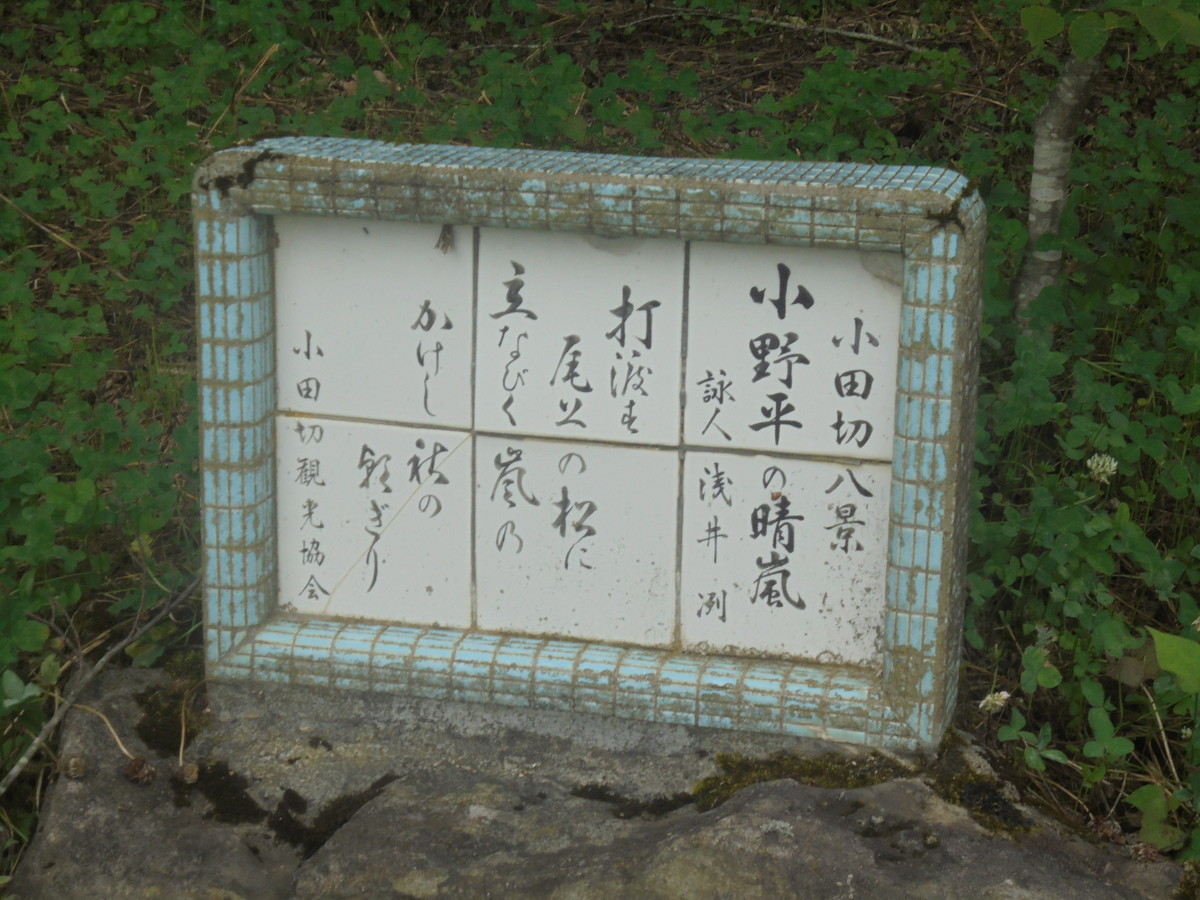 小田切八景
小野平の晴嵐
詠人 浅井 冽
打渡す
尾上の松に
立なびく嵐の
かけし秋の
朝ぎり
小田切観光協会